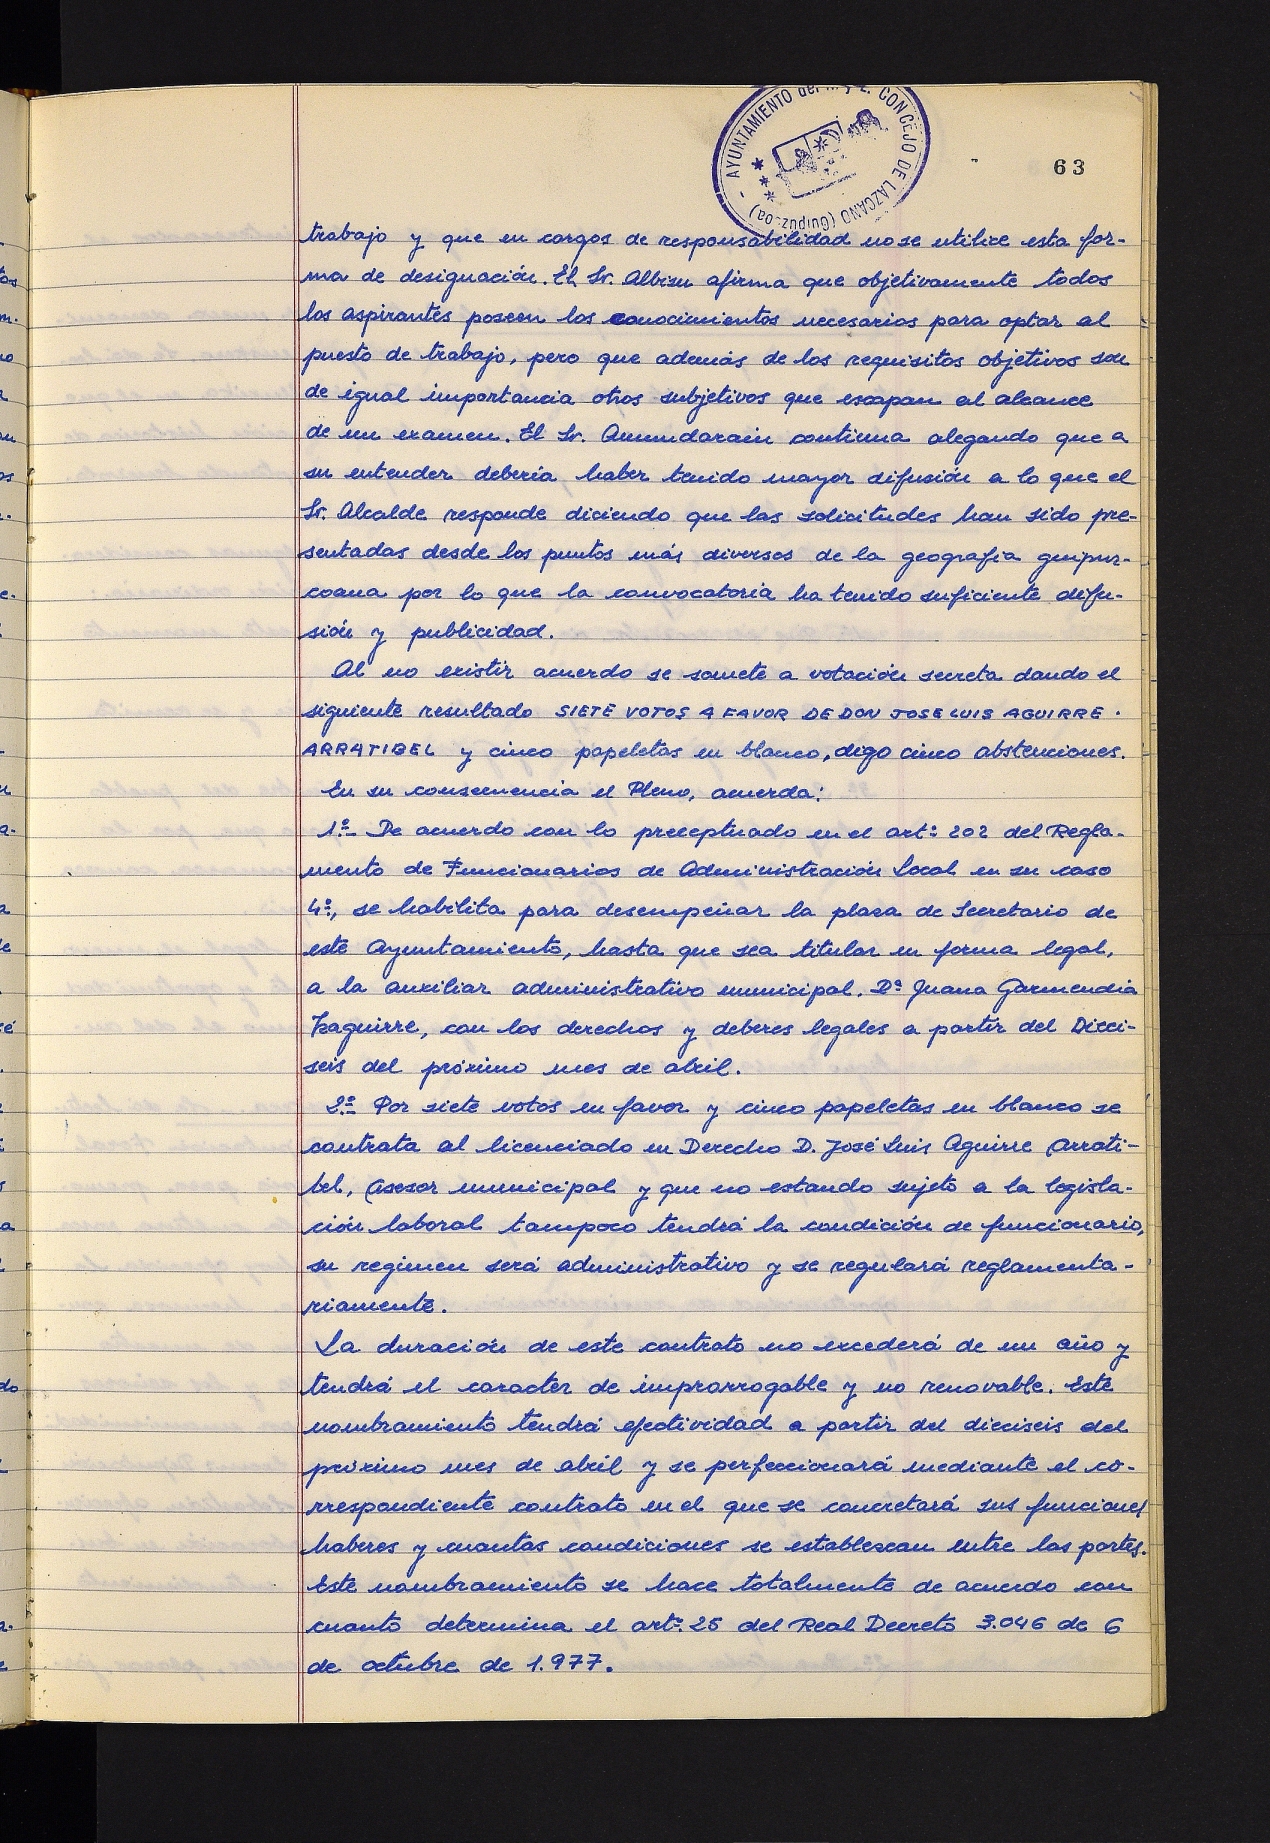 AYUNTAMIENTO del N. y L. CONCEJO DE LAZCANO (Guipúzcoa)
63
trabajo y que en cargos de responsabilidad no se utilice esta for-
ma de designación. El Sr. Albisu afirma que objetivamente todos
los aspirantes poseen los conocimientos necesarios para optar al
puesto de trabajo, pero que además de los requisitos objetivos son
de igual importancia otros subjetivos que escapan al alcance
de un examen. El Sr. Amundarain continua alegando que a
su entender debería haber tenido mayor difusión a lo que el
Sr. Alcalde responde diciendo que las solicitudes han sido pre-
sentadas desde los puntos más diversos de la geografía guipuz-
coana por lo que la convocatoria ha tenido suficiente difu-
sión y publicidad.
Al no existir acuerdo se somete a votación secreta dando el
siguiente resultado SIETE VOTOS A FAVOR DE DON JOSE LUIS AGUIRRE.
ARRATIBEL y cinco papeletas en blanco, digo cinco abstenciones.
En su consecuencia el Pleno, acuerda:
1º- De acuerdo con lo preceptuado en el artº 202 del Regla-
mento de Funcionarios de Administración Local en su caso
4º, se habilita para desempeñar la plaza de Secretario de
este Ayuntamiento, hasta que sea titular en forma legal,
a la auxiliar administrativo municipal. Dª Juana Garmendia
Izaguirre, con los derechos y deberes legales a partir del Dieci-
seis del próximo mes de abril.
2º- Por siete votos en favor y cinco papeletas en blanco se
contrata al licenciado en Derecho D. José Luis Aguirre Arrati-
bel, Asesor municipal y que no estando sujeto a la legisla-
ción laboral tampoco tendrá la condición de funcionario,
su regimen será administrativo y se regulará reglamenta-
riamente.
La duración de este contrato no excederá de un año y
tendrá el caracter de improrrogable y no renovable. Este
nombramiento tendrá efectividad a partir del dieciseis del
próximo mes de abril y se perfeccionará mediante el co-
rrespondiente contrato en el que se concretará sus funciones,
haberes y cuantas condiciones se establezcan entre las partes.
Este nombramiento se hace totalmente de acuerdo con
cuanto determina el artº 25 del Real Decreto 3.046 de 6
de octubre de 1.977.